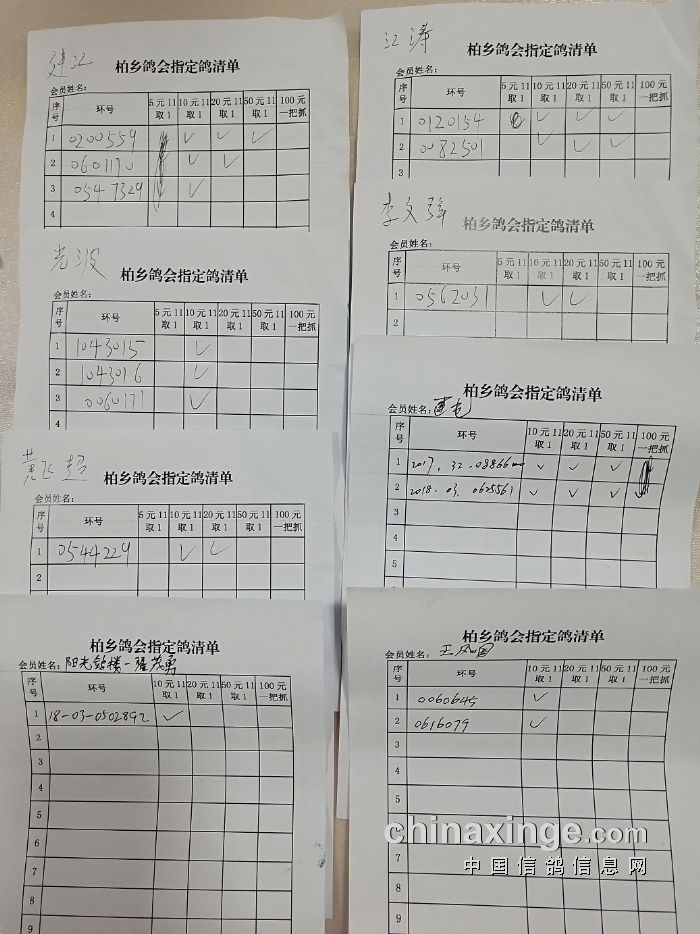 建江
柏乡鸽会指定鸽清单
会员姓名：
序号 环号 5元11取1 10元11取1 20元11取1 50元11取1 100元一把抓
1 0200559 ✓ ✓ ✓
2 0601170 ✓ ✓
3 0547329 ✓
4
江涛
柏乡鸽会指定鸽清单
会员姓名：
序号 环号 5元11取1 10元11取1 20元11取1 50元11取1 100元一把抓
1 0120154 ✓ ✓ ✓
2 0082501 ✓ ✓ ✓
3
光波
柏乡鸽会指定鸽清单
会员姓名：
序号 环号 5元11取1 10元11取1 20元11取1 50元11取1 100元一把抓
1 1043015 ✓
2 1043016 ✓
3 0060171 ✓
4
李文强
柏乡鸽会指定鸽清单
会员姓名：
序号 环号 5元11取1 10元11取1 20元11取1 50元11取1 100元一把抓
1 0562031 ✓ ✓
2
黄飞超
柏乡鸽会指定鸽清单
会员姓名：
序号 环号 5元11取1 10元11取1 20元11取1 50元11取1 100元一把抓
1 0544229 ✓ ✓
2
柏乡鸽会指定鸽清单
会员姓名：
序号 环号 10元11取1 20元11取1 50元11取1 100元一把抓
1 2017.32.08866 ✓ ✓ ✓
2 2018.03.0625561 ✓ ✓ ✓ ✓
3
4
5
6
7
8
柏乡鸽会指定鸽清单
会员姓名：阳光鸽楼-翟茂勇
序号 环号 10元11取1 20元11取1 50元11取1 100元一把抓
1 18-03-0502892 ✓
2
3
4
5
6
7
8
9
柏乡鸽会指定鸽清单
会员姓名：王风国
序号 环号 10元11取1 20元11取1 50元11取1 100元一把抓
1 0060645 ✓
2 0616079 ✓
3
4
5
6
7
8
9
chinaxinge.com
中国信鸽信息网